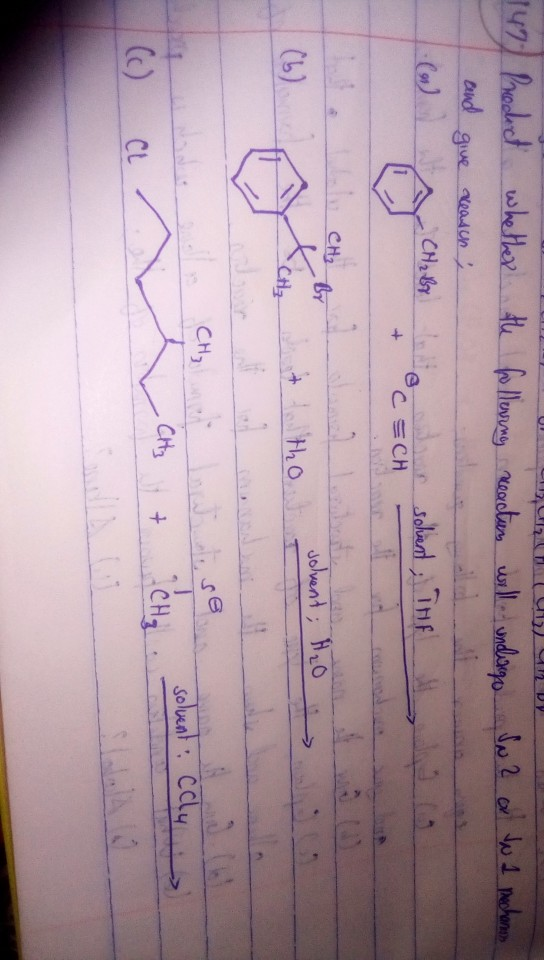 147. Product whether the following reaction will undergo SN2 or SN1
and give reason;
(a) CH2Br + ⊖C≡CH solvent; THF
(b) CH3 Br CH3 + H2O solvent; H2O
(c) Cl CH3 CH3 + S⊖ CH3 solvent: CCl4